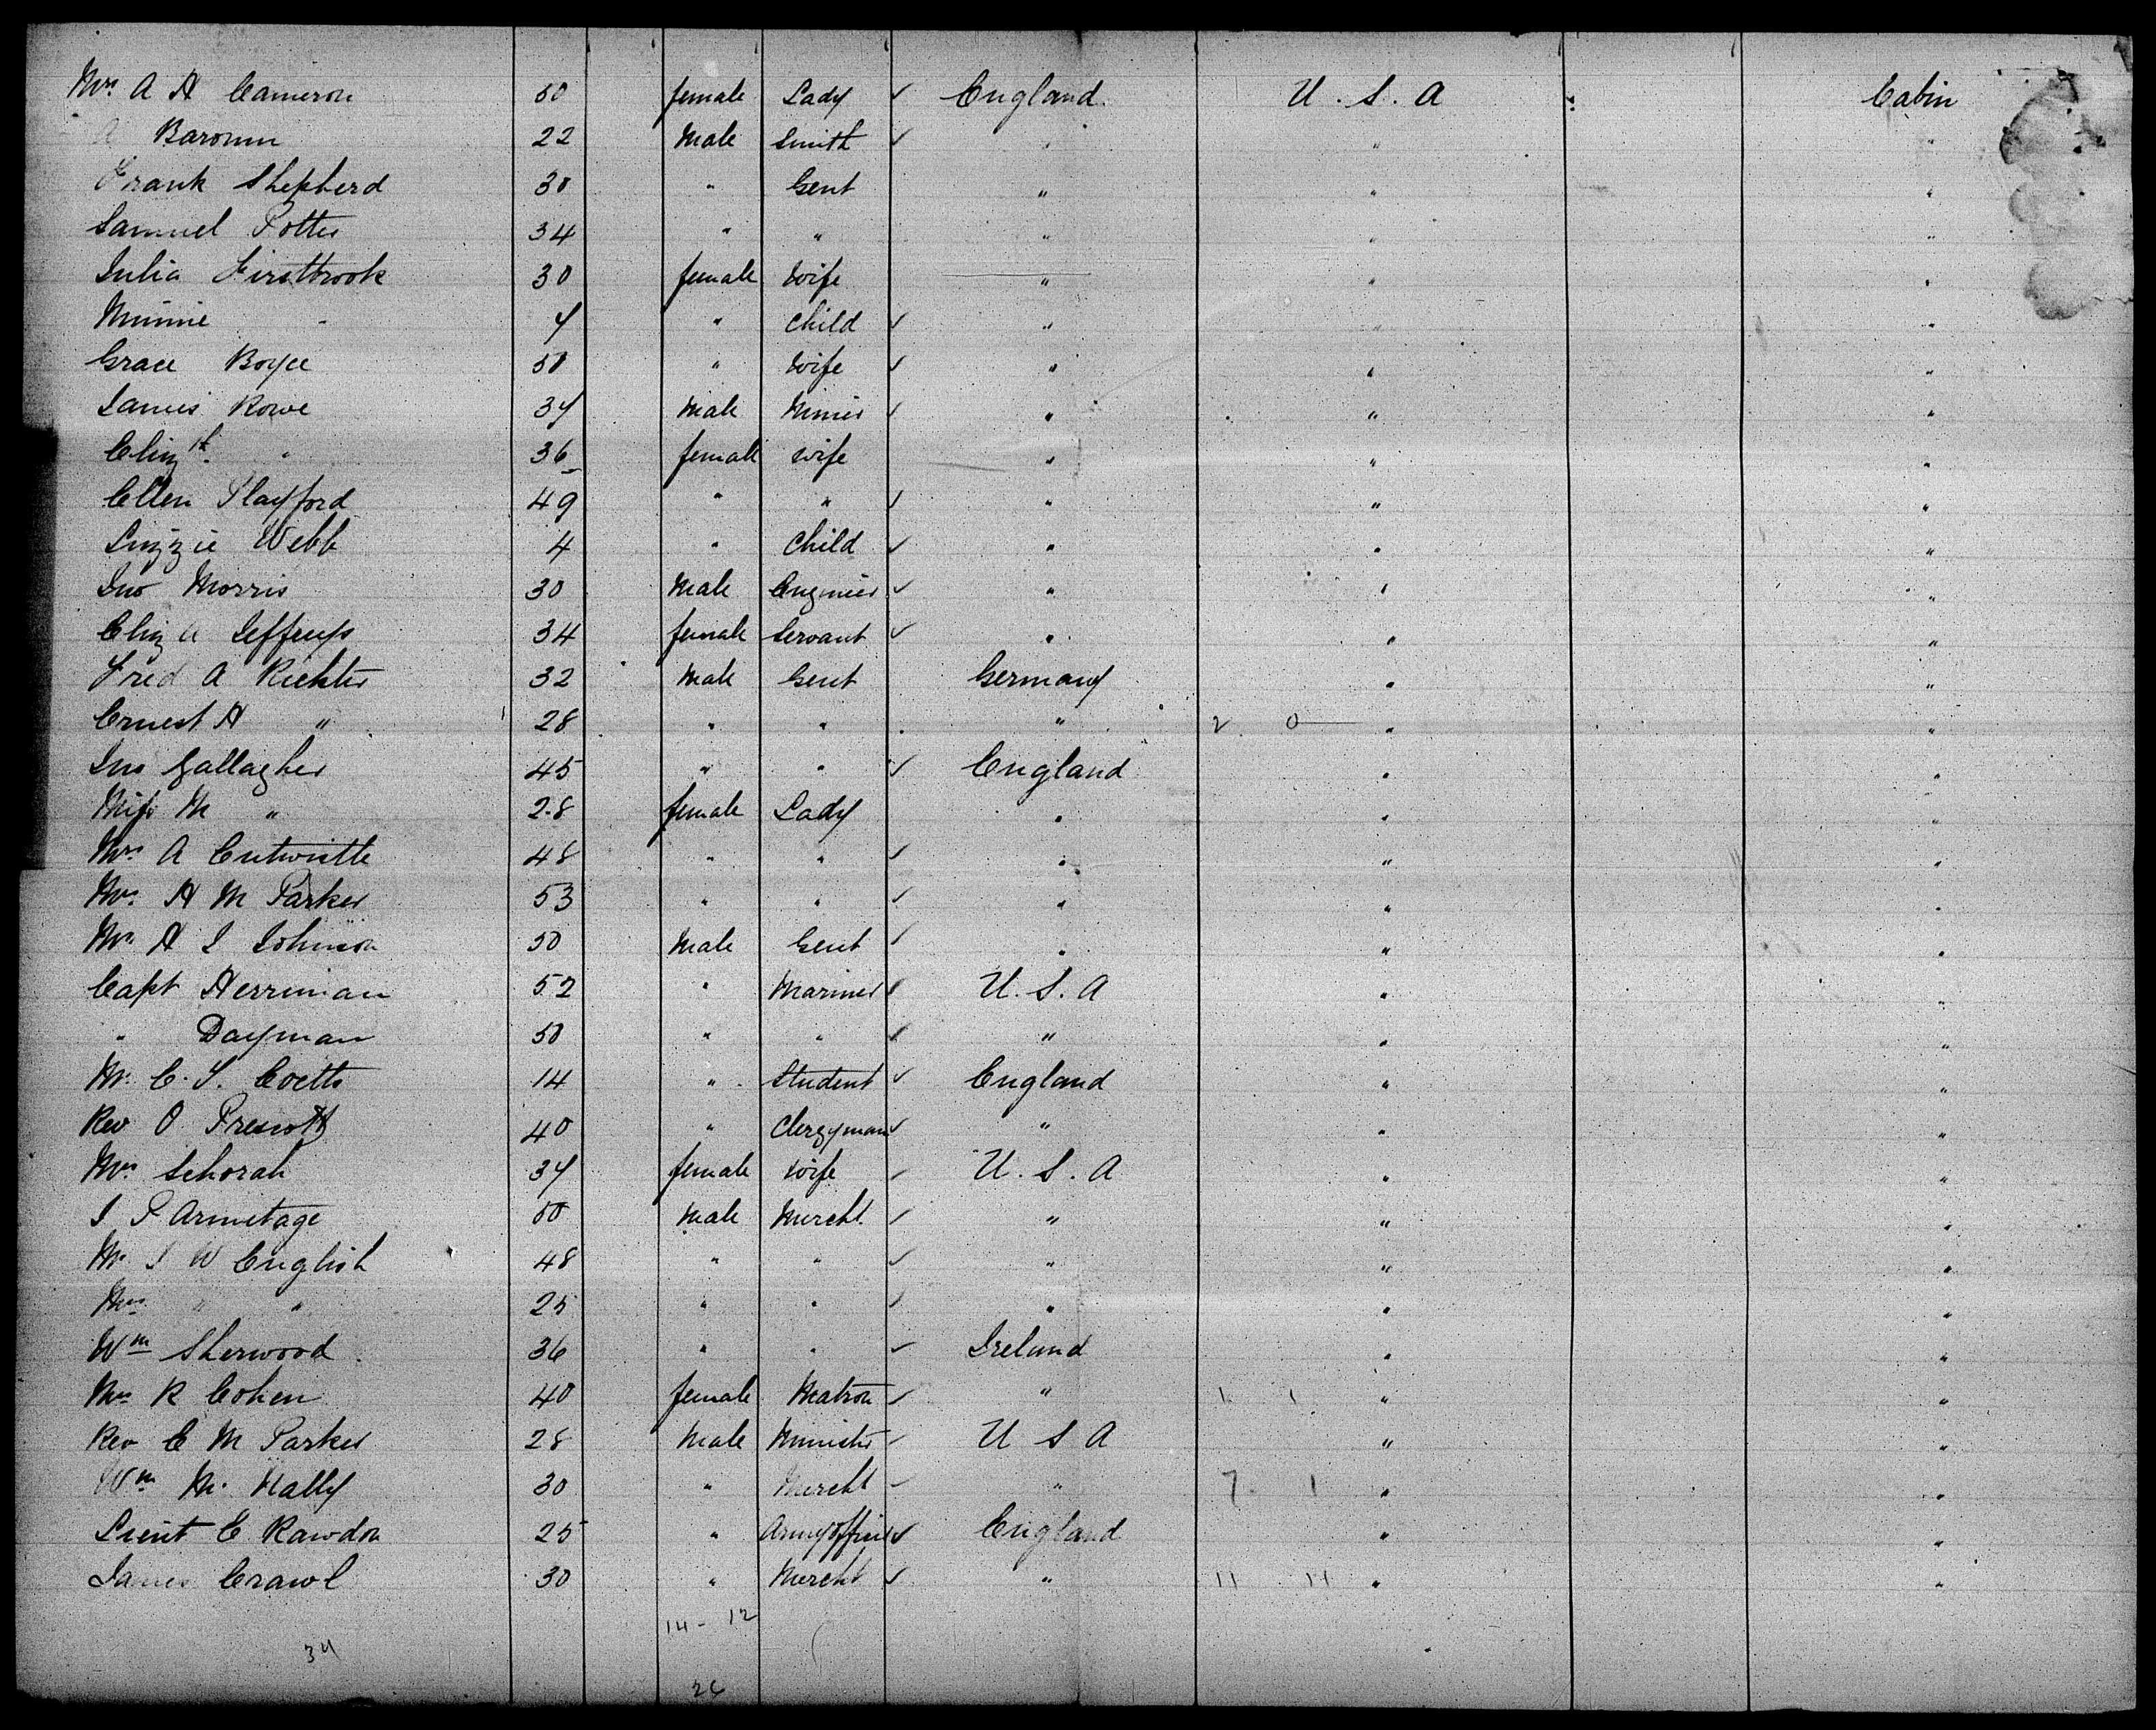 Mrs. A H Cameron 50 female Lady ✓ England. U. S. A Cabin
Baronin 22 Male Smith ✓ " " "
Frank Shepherd 30 " Gent " " "
Samuel Potter 34 " " " " "
Julia Firstbrook 30 female Wife " " "
Minnie " 4 " Child ✓ " " "
Grace Boyce 50 " Wife ✓ " " "
James Rowe 37 Male Miner ✓ " " "
Elizth. " 36 female Wife " " "
Ellen Playford 49 " " ✓ " " "
Lizzie Webb 4 " Child ✓ " " "
Jno Morris 30 Male Engineer ✓ " " "
Eliz A Jefferys 34 female Servant ✓ " " "
Fred A Richter 32 Male Gent Germany " "
Ernest H " 28 " " " 2 0 " "
Jno Gallagher 45 " " ✓ England " "
Miss M " 28 female Lady " " "
Mrs A Entwistle 48 " " ✓ " " "
Mrs. H M Parker 53 " " ✓ " " "
Mr. H J Johnson 50 Male Gent ✓ " " "
Capt Herriman 52 " Mariner ✓ U. S. A " "
" Dayman 50 " " ✓ " " "
Mr. C. S. Coetts 14 " Student ✓ England " "
Rev O Prescott 40 " Clergyman ✓ " " "
Mrs. Schorah 37 female Wife ✓ U. S. A " "
J P Armitage 50 Male Mercht. ✓ " " "
Mr. J W English 48 " " ✓ " " "
Mrs " " 25 " " ✓ " " "
Wm Sherwood 36 " " ✓ Ireland " "
Mrs R Cohen 40 female Matron ✓ " 1 1 " "
Rev E M Parker 28 Male Minister ✓ U S A " "
Wm Mc Nally 30 " Mercht ✓ " 7 1 " "
Lieut E Rawdon 25 " Army Officer ✓ England " "
James Crawl 30 " Mercht ✓ " 11 11 " "
14 - 12
34
26